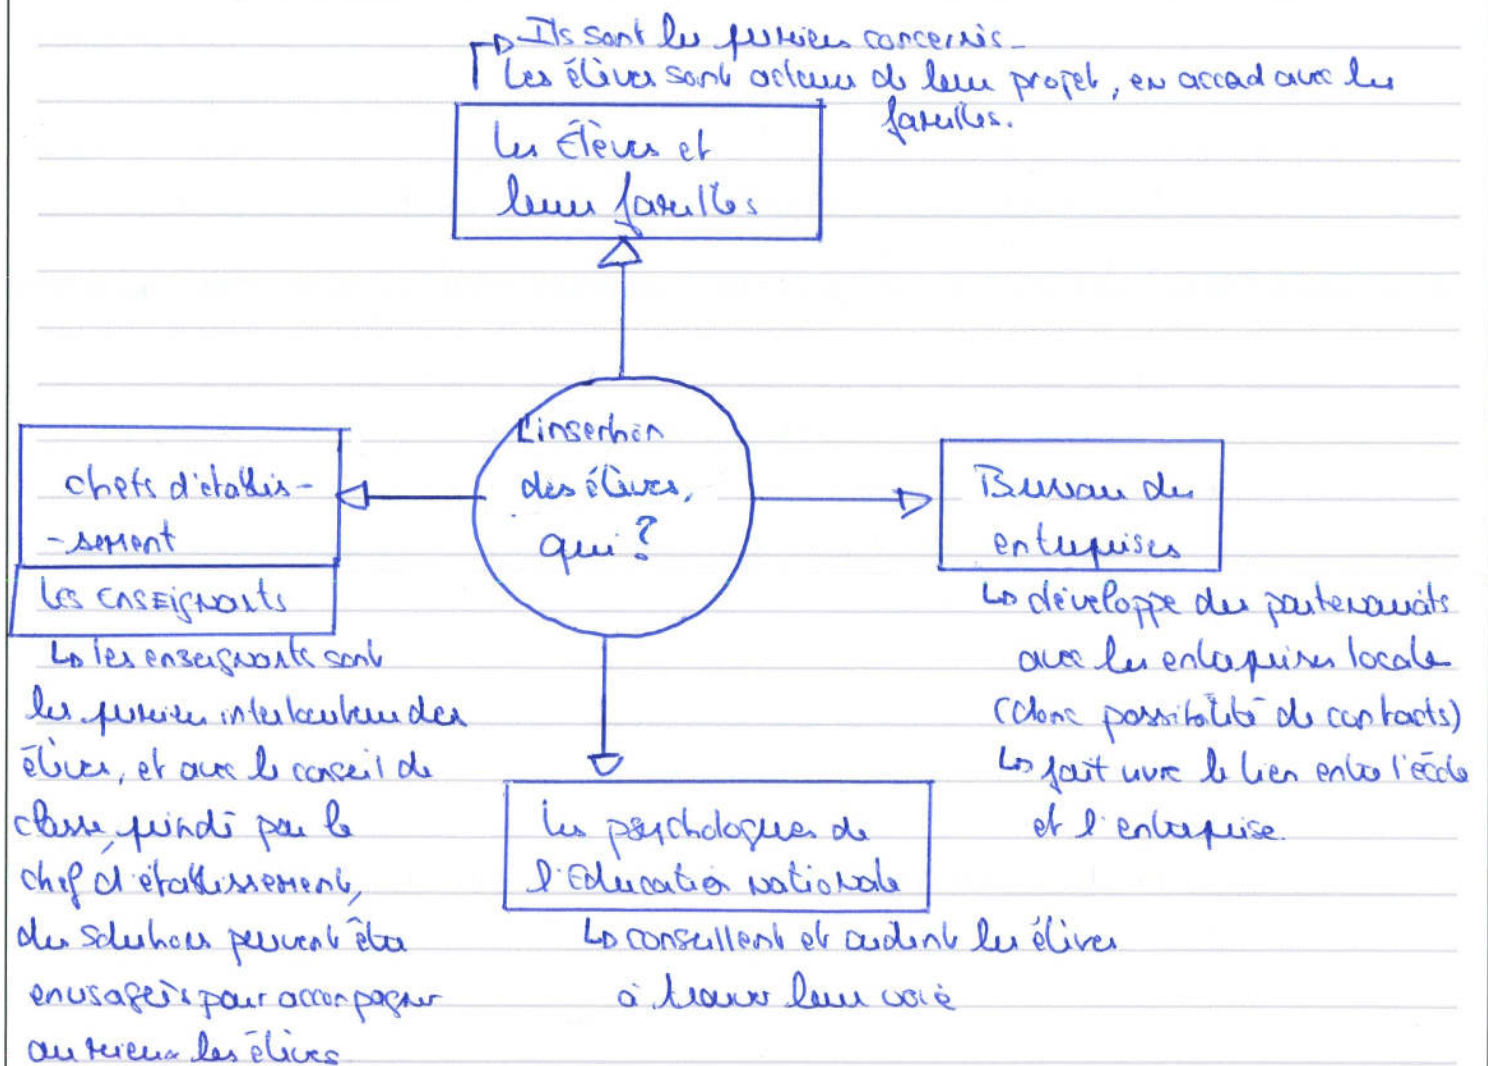 Ils sont les premiers concernés.
Les élèves sont acteurs de leur projet, en accord avec les
familles.
Les Élèves et
leurs familles
L'insertion
des élèves,
qui ?
chefs d'établis-
-sement
Les enseignants
Les enseignants sont
les premiers interlocuteurs des
élèves, et avec le conseil de
classe, présidé par le
chef d'établissement,
des solutions peuvent être
envisagées pour accompagner
au mieux les élèves
Bureau des
entreprises
développe des partenariats
avec les entreprises locales
(donc possibilité de contacts)
fait vivre le lien entre l'école
et l'entreprise.
Les psychologues de
l'Education nationale
conseillent et aident les élèves
à trouver leur voie